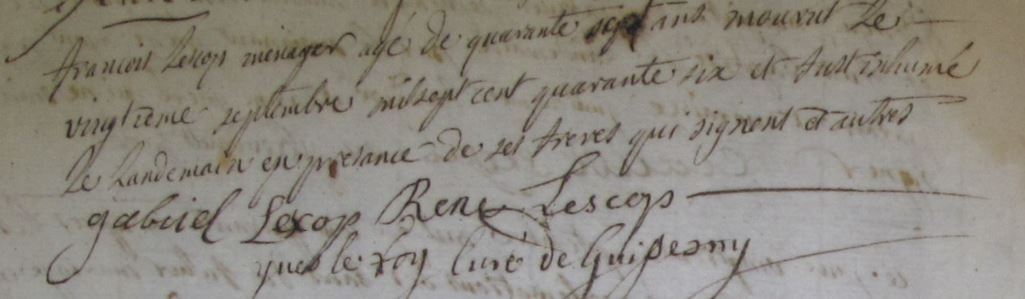 francois Lescop menager agé de quarante sept ans mourut Le
vingtieme septembre milsept cent quarante six et fust inhumé
Le Landemain en presance de ses freres qui signent et autres
gabriel Lescop René Lescop
yves le roy Curé de Guiperny